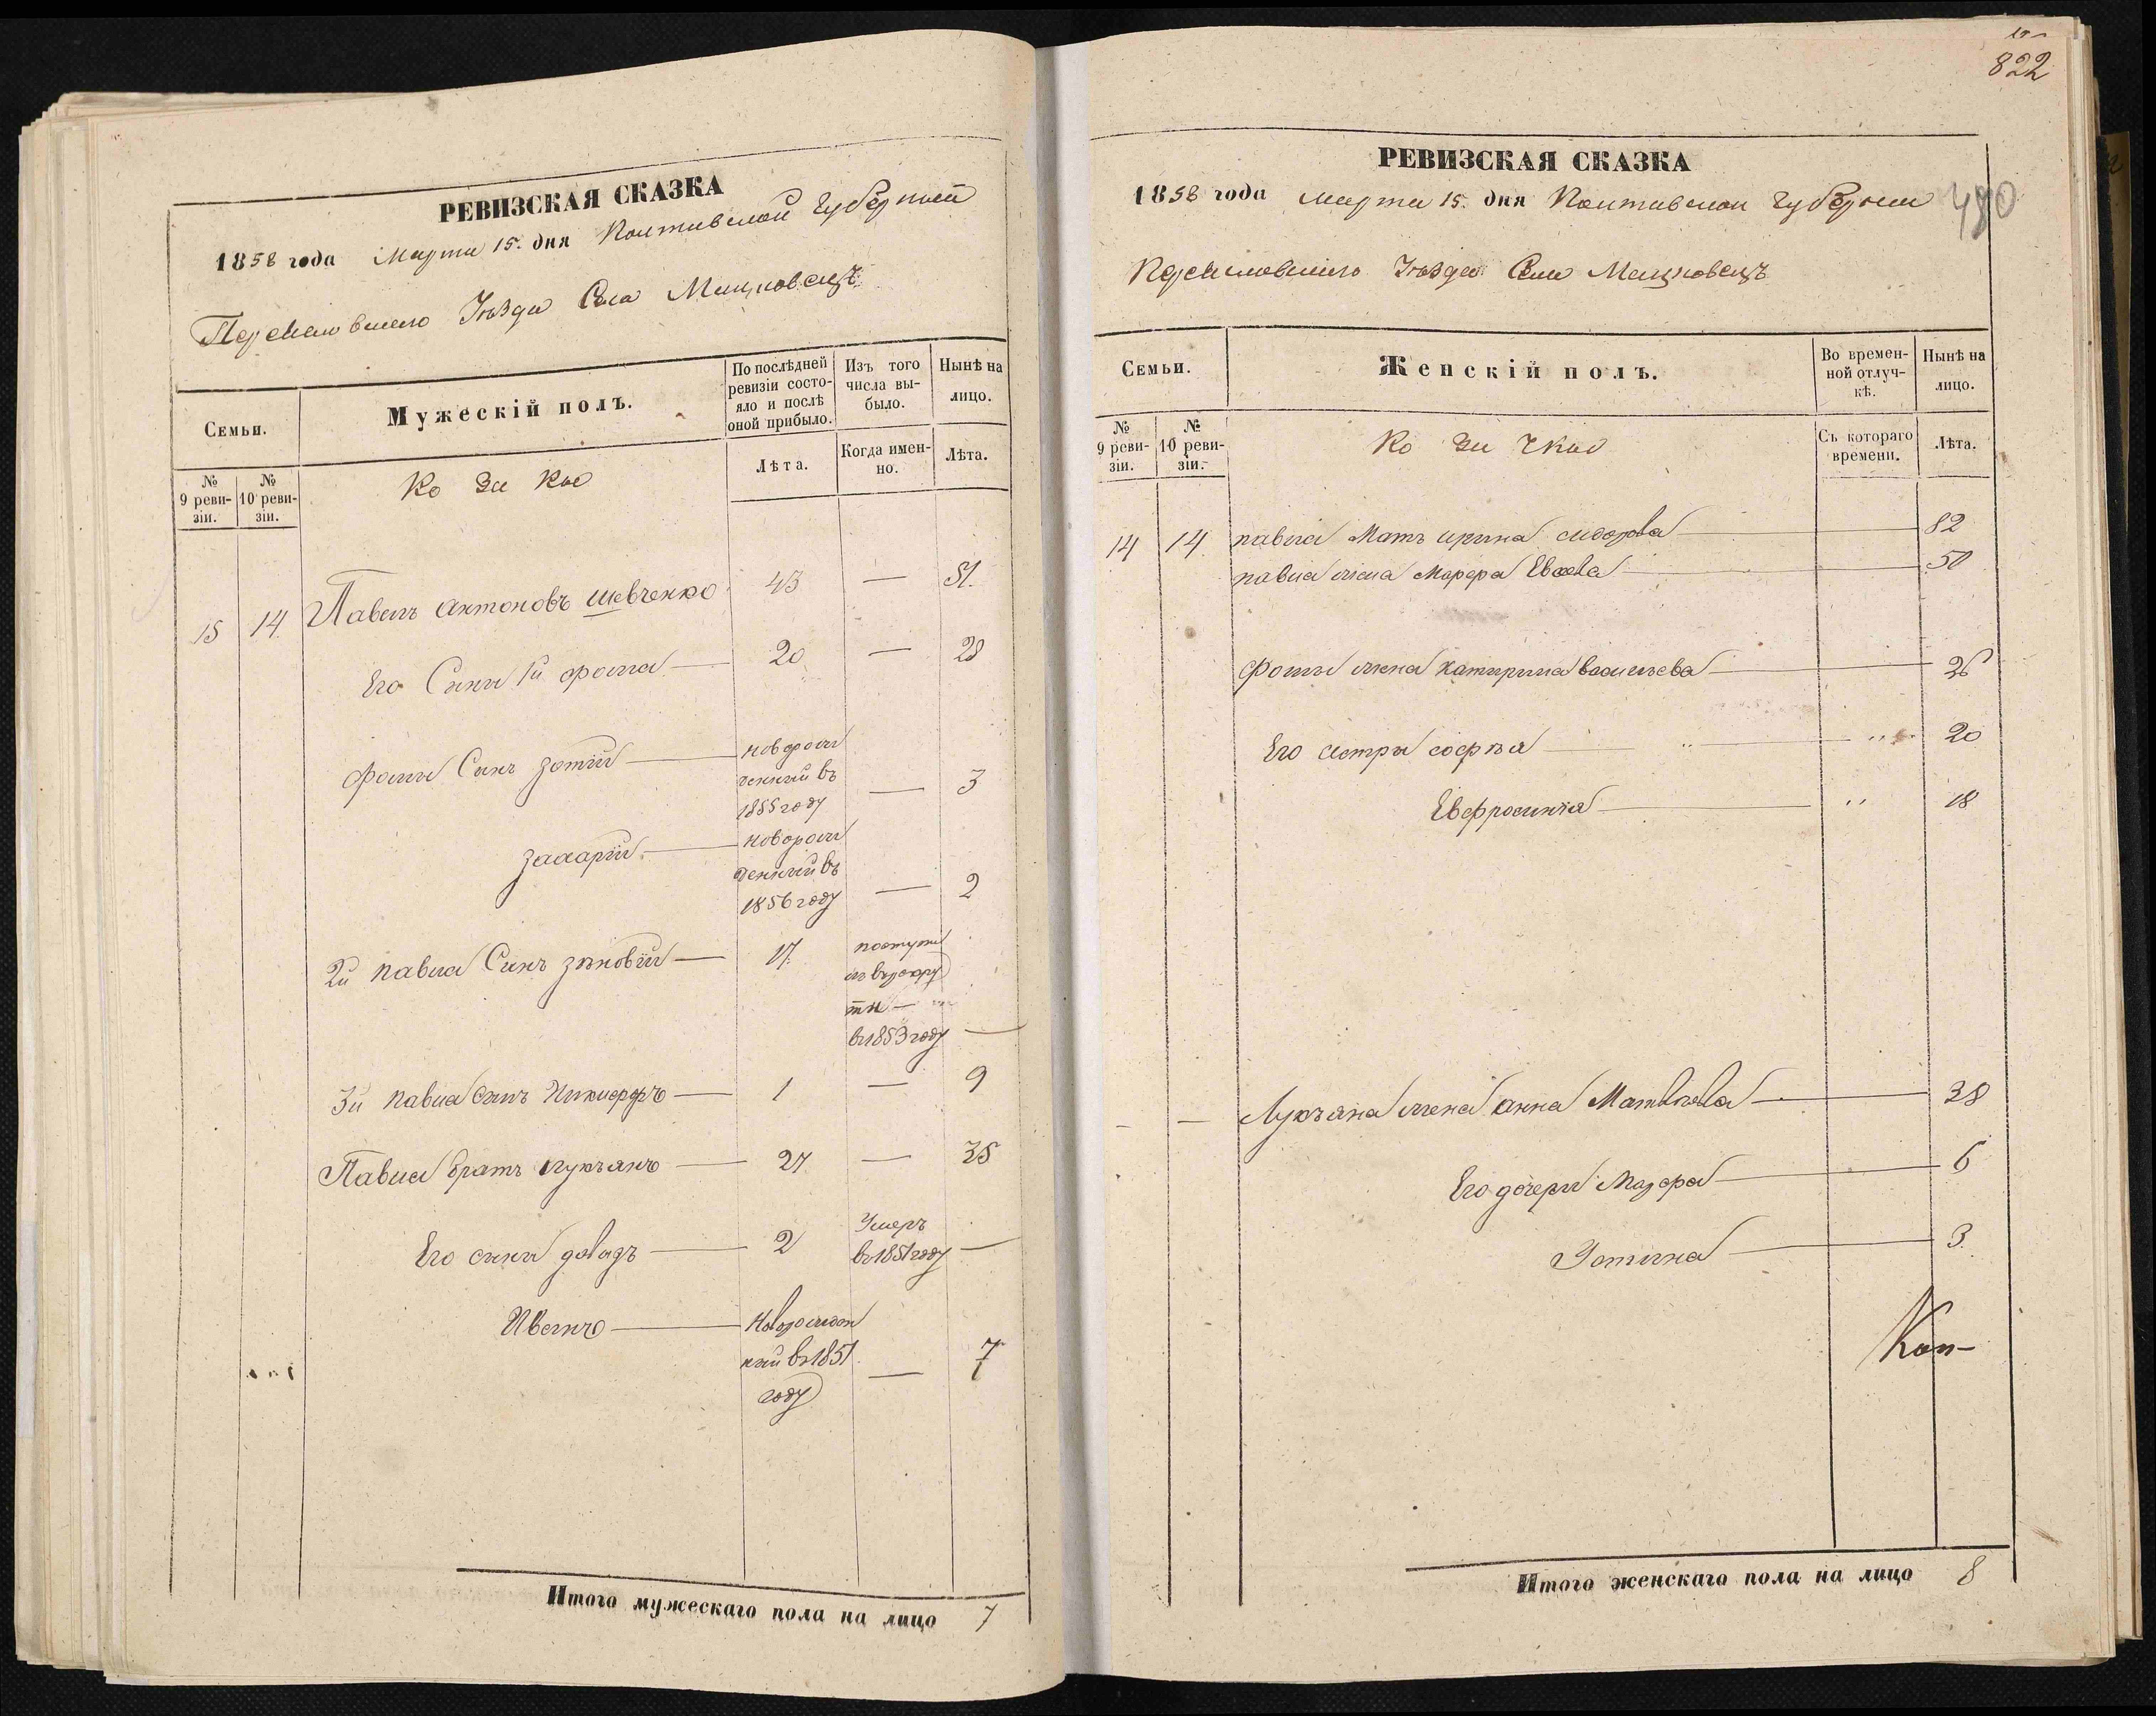 РЕВИЗСКАЯ СКАЗКА
1858 года Марта 15. дня Полтавской Губерніи
Переяславскаго Уѣзда Села
Семьи.
Мужескій полъ.
По послѣдней ревизіи состояло и послѣ оной прибыло.
Изъ того числа выбыло.
Нынѣ на лицо.
№ 9 ревизіи.
№ 10 ревизіи.
Козаки
Лѣта.
Когда именно.
Лѣта.
15 14. Павелъ Антоновъ Шевченко 43 — 51.
Его Сины 1й фома — 20 — 28
фомы Синъ зотій — новорож
денный въ
1855 году — 3
захарій — новорож
денный въ
1856 году — 2
2й павла Синъ зѣновій — 17. поступи
лъ врекру
ты —
в 1853 году —
3й павла синъ Никифоръ — 1 — 9
Павла братъ лукъянъ — 27 — 35
Его сины давидъ — 2 Умеръ
в 1851 году —
Иванъ — Новорожден
ный в 1851
году — 7
Итого мужескаго пола на лицо 7
822
РЕВИЗСКАЯ СКАЗКА
480
1858 года Марта 15. дня Полтавской Губерніи
Переяславскаго Уѣзда Села
Семьи.
Женскій полъ.
Во временной отлучкѣ.
Нынѣ на лицо.
№ 9 ревизіи.
№ 10 ревизіи.
Козачки
Съ котораго времени.
Лѣта.
14 14 павла Мать ирина сидорова — 82
павла жена Марфа — 50
фомы жена катирина васильева — 26
Его сестры софья — 20
Евфросинія — 18
— — Лукъяна жена анна Матвѣева — 38
Его дочери — 6
— 3.
Итого женскаго пола на лицо 8